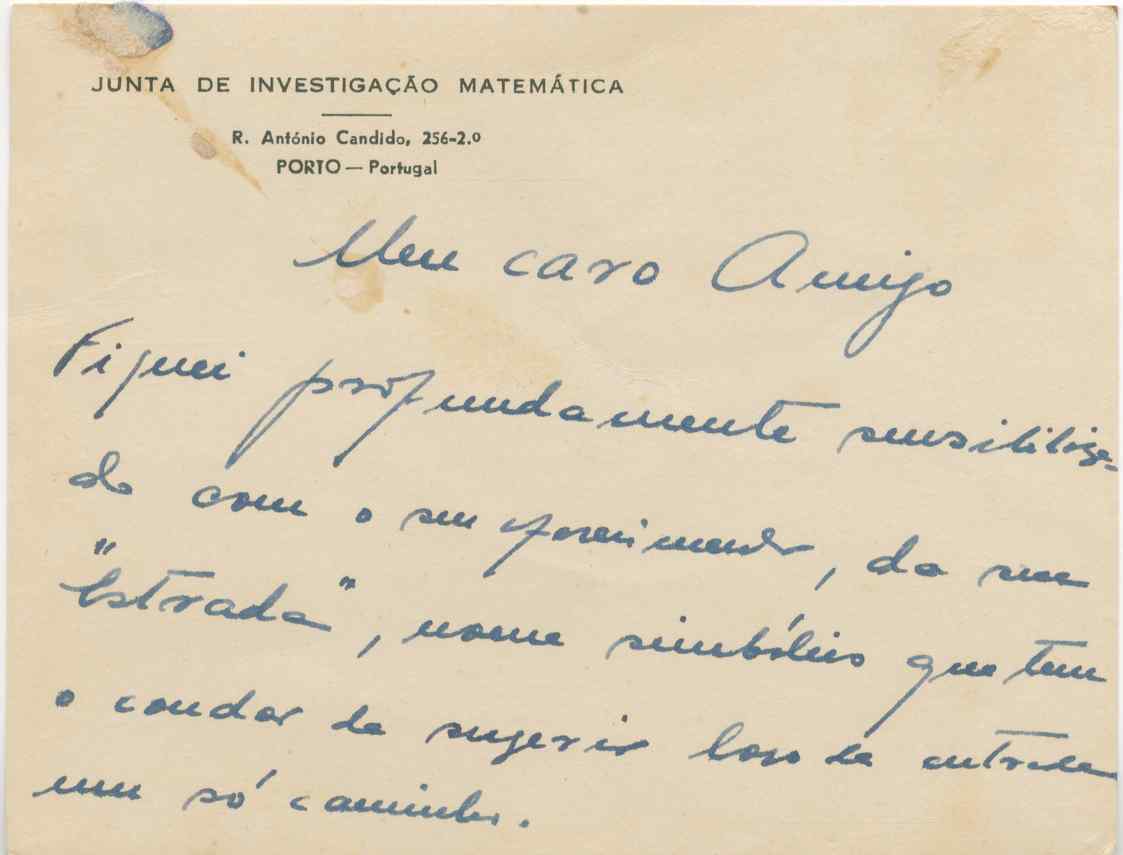 JUNTA DE INVESTIGAÇÃO MATEMÁTICA
R. António Candido, 256-2.º
PORTO — Portugal
Meu caro Amigo
Fiquei profundamente sensibiliza-
do com o seu oferecimento, da sua
"Estrada", nome simbólico que tem
o condor de sugerir logo de entrada
um só caminho.